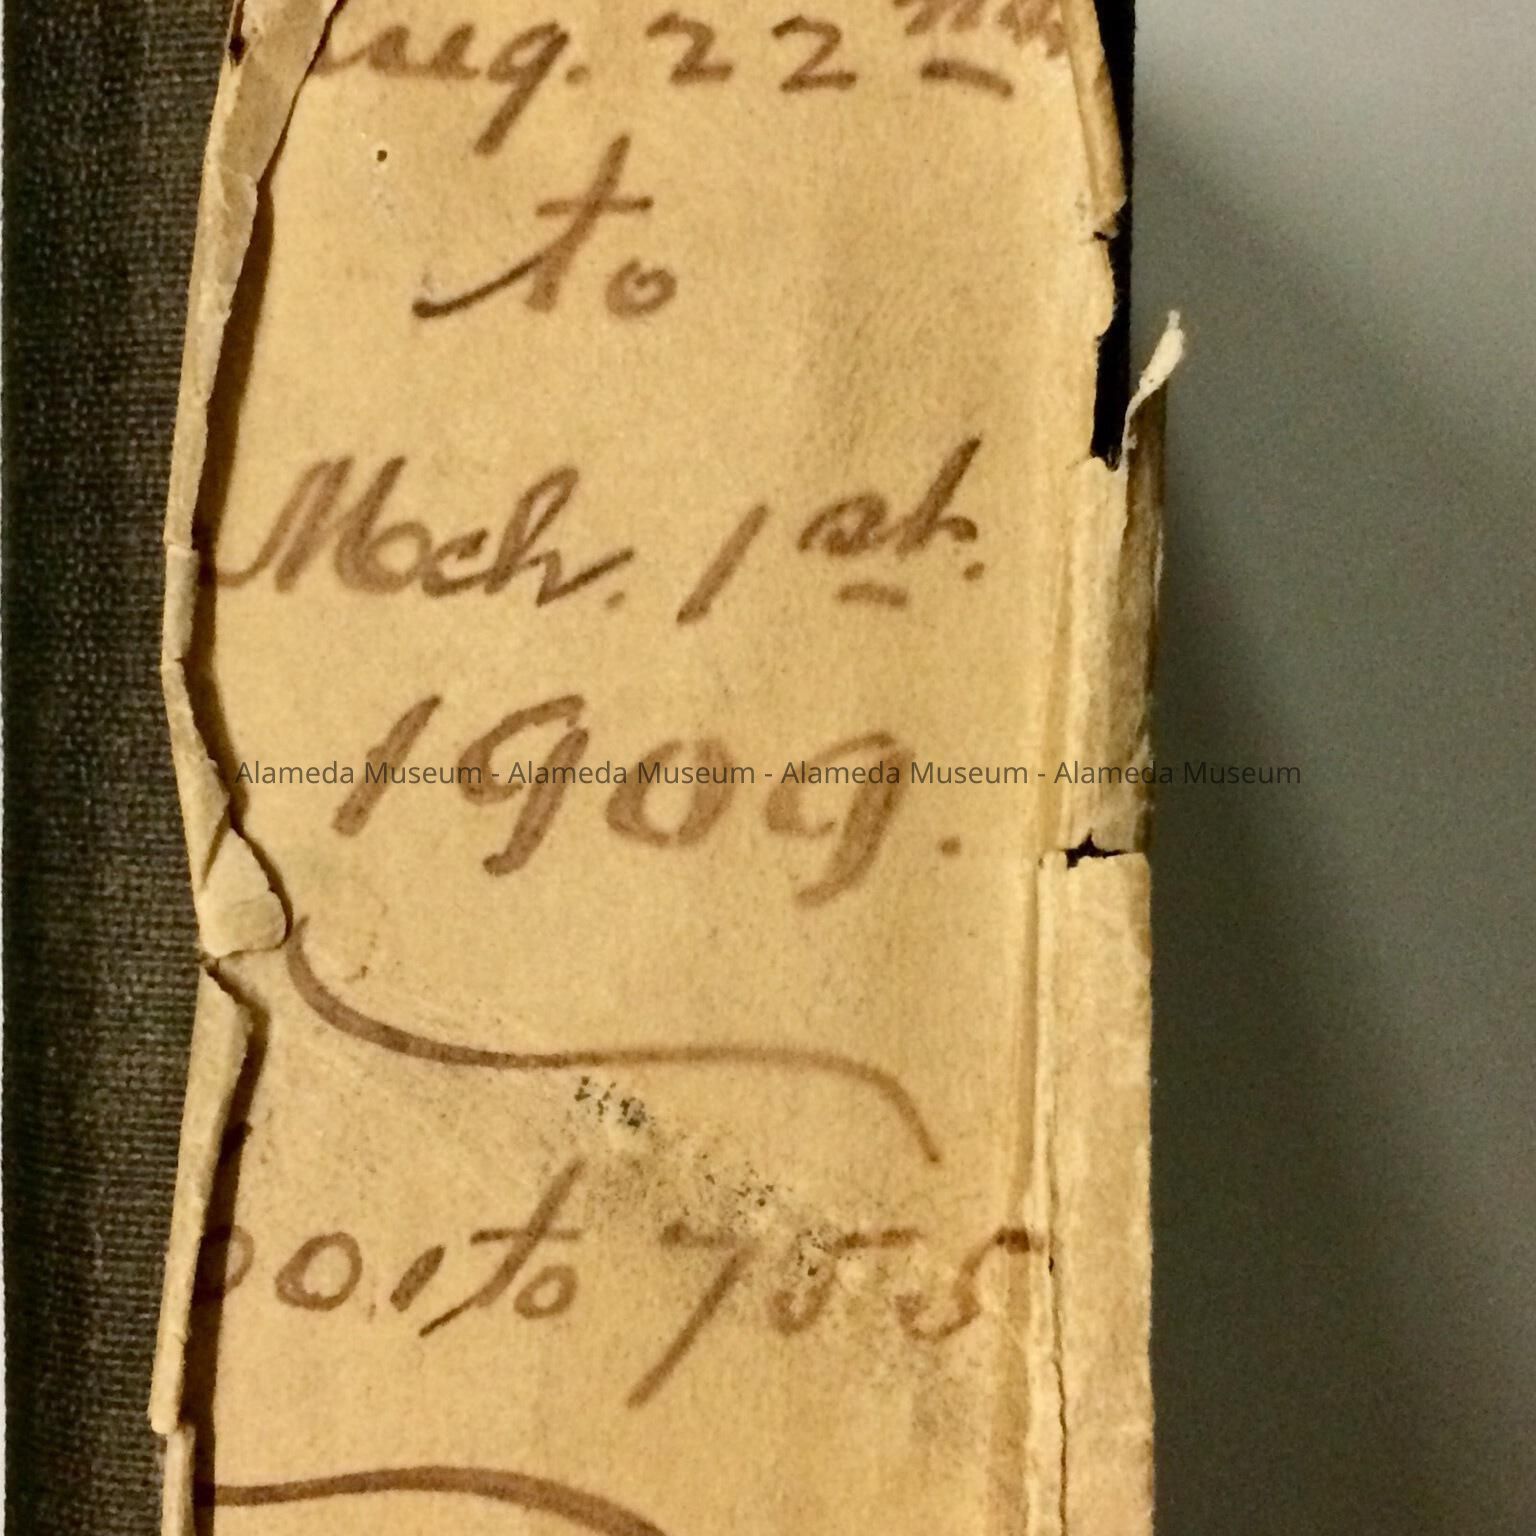 Aug. 22nd
to
Mch. 1st.
1909.
Alameda Museum - Alameda Museum - Alameda Museum - Alameda Museum
001 to 755